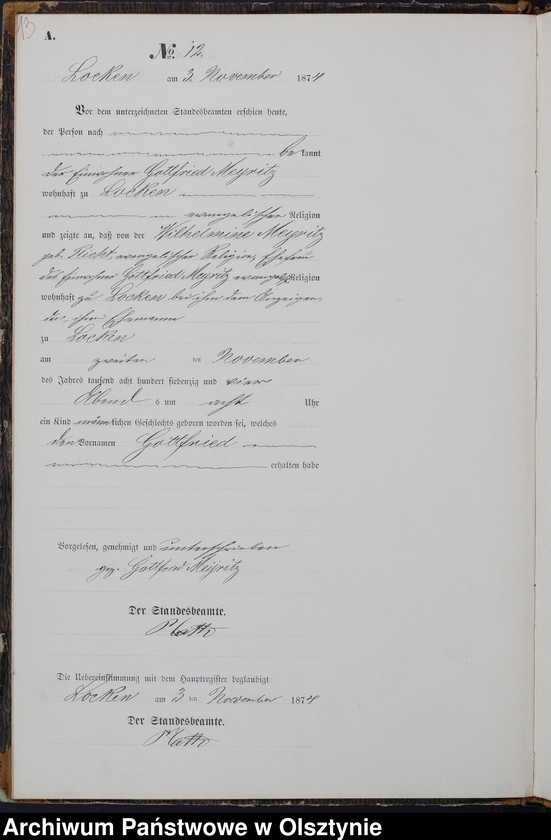 13
A.
No. 12.
Locken am 3. November 1874
Vor dem unterzeichneten Standesbeamten erschien heute,
der Person nach
bekannt
der Einwohner Gottfried Meyritz
wohnhaft zu Locken
evangelischer Religion
und zeigte an, daß von der Wilhelmine Meyritz
geb. evangelischer Religion, Ehefrau
des Einwohner Gottfried Meyritz evangel. Religion
wohnhaft zu Locken bei ihm dem Anzeigen-
den, ihrem Ehemanne
zu Locken
am zweiten ten November
des Jahres tausend acht hundert siebenzig und vier
Abends um acht Uhr
ein Kind männlichen Geschlechts geboren worden sei, welches
den Vornamen Gottfried
erhalten habe
Vorgelesen, genehmigt und unterschrieben
gez. Gottfried Meyritz
Der Standesbeamte.
Die Uebereinstimmung mit dem Hauptregister beglaubigt
Locken am 3 ten November 1874
Der Standesbeamte.
Archiwum Państwowe w Olsztynie